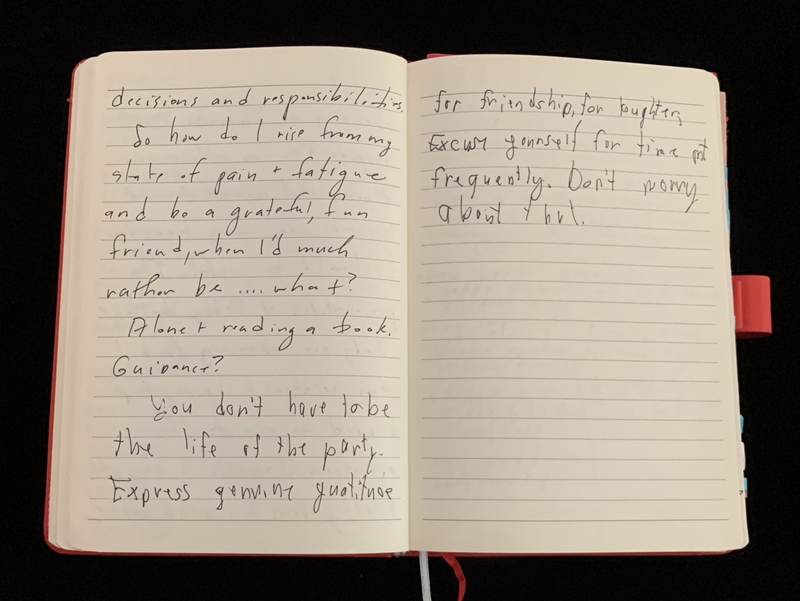 decisions and responsibilities.
So how do I rise from my
state of pain + fatigue
and be a grateful, fun
friend, when I'd much
rather be .... what?
Alone + reading a book.
Guidance?
You don't have to be
the life of the party.
Express genuine gratitude
for friendship, for laughter,
Excuse yourself for time out
frequently. Don't worry
about that.